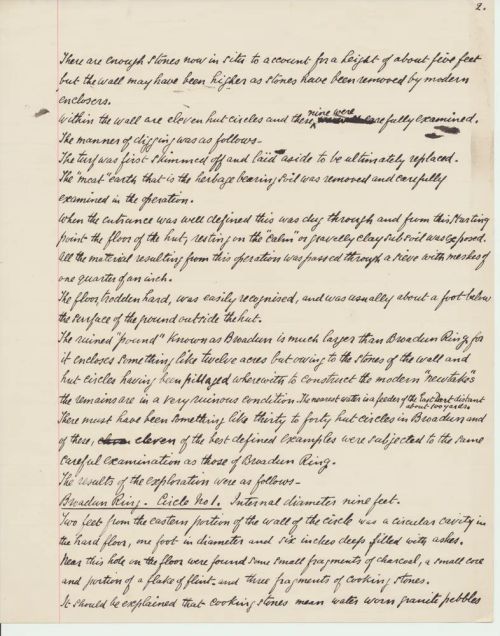 2.
There are enough stones now in situ to account for a height of about five feet
but the wall may have been higher as stones have been removed by modern
enclosers.
Within the wall are eleven hut circles and these nine were carefully examined.
The manner of digging was as follows-
The turf was first skimmed off and laid aside to be ultimately replaced.
The "meat" earth that is the herbage bearing soil was removed and carefully
examined in the operation.
When the entrance was well defined this was dug through and from this starting
point the floor of the hut, resting on the "calm" or gravelly clay sub soil was exposed.
All the material resulting from this operation was passed through a sieve with meshes of
one quarter of an inch.
The floor, trodden hard, was easily recognised, and was usually about a foot below
the surface of the ground outside the hut.
The ruined "pound" known as Broadun is much larger than Broadun Ring, for
it encloses something like twelve acres but owing to the stones of the wall and
hut circles having been pillaged wherewith to construct the modern "newtakes"
the remains are in a very ruinous condition. The nearest water is a feeder of the East Dart distant
about 600 yards.
There must have been something like thirty to forty hut circles in Broadun and
of these, eleven of the best defined examples were subjected to the same
careful examination as those of Broadun Ring.
The results of the exploration were as follows-
Broadun Ring. Circle No 1. Internal diameter nine feet.
Two feet from the eastern portion of the wall of the circle was a circular cavity in
the hard floor, one foot in diameter and six inches deep filled with ashes.
Near this hole on the floor were found some small fragments of charcoal, a small core
and portion of a flake of flint, and three fragments of cooking stones.
It should be explained that cooking stones mean water worn granite pebbles